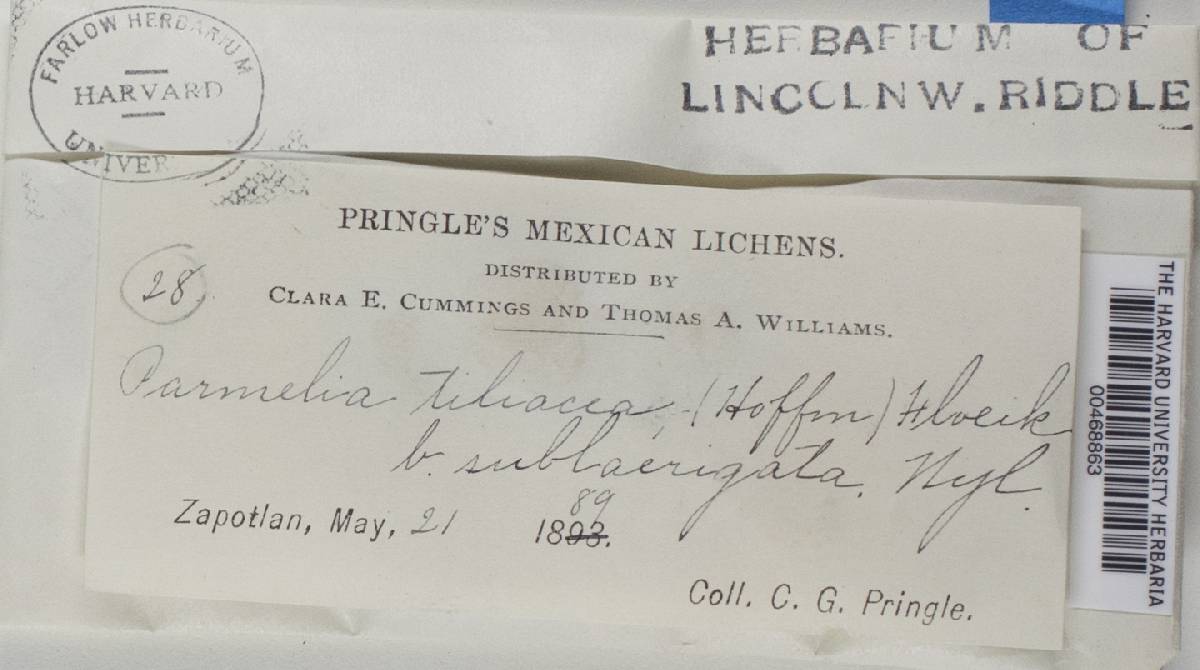 FARLOW HERBARIUM
HARVARD
UNIVER
HERBARIUM OF
LINCOLN W. RIDDLE
PRINGLE'S MEXICAN LICHENS.
DISTRIBUTED BY
CLARA E. CUMMINGS AND THOMAS A. WILLIAMS.
28
Parmelia tiliacea, (Hoffm) Floeik
b. sublaevigata, Nyl.
89
Zapotlan, May, 21 1893.
Coll. C. G. Pringle.
THE HARVARD UNIVERSITY HERBARIA
00468863